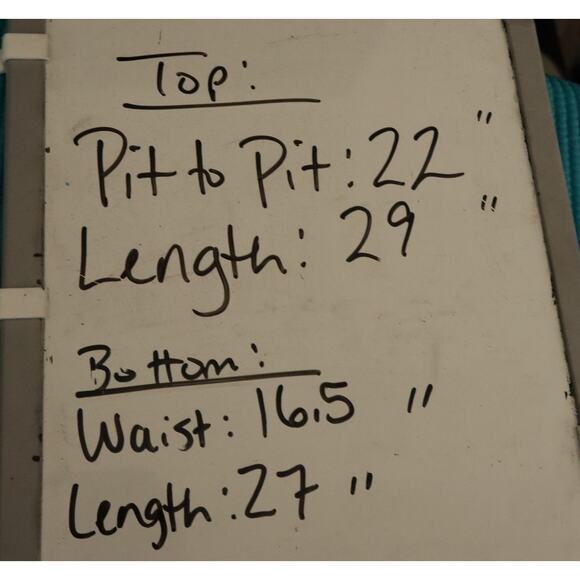 Top:
Pit to Pit: 22"
Length: 29"
Bottom:
Waist: 16.5"
Length: 27"